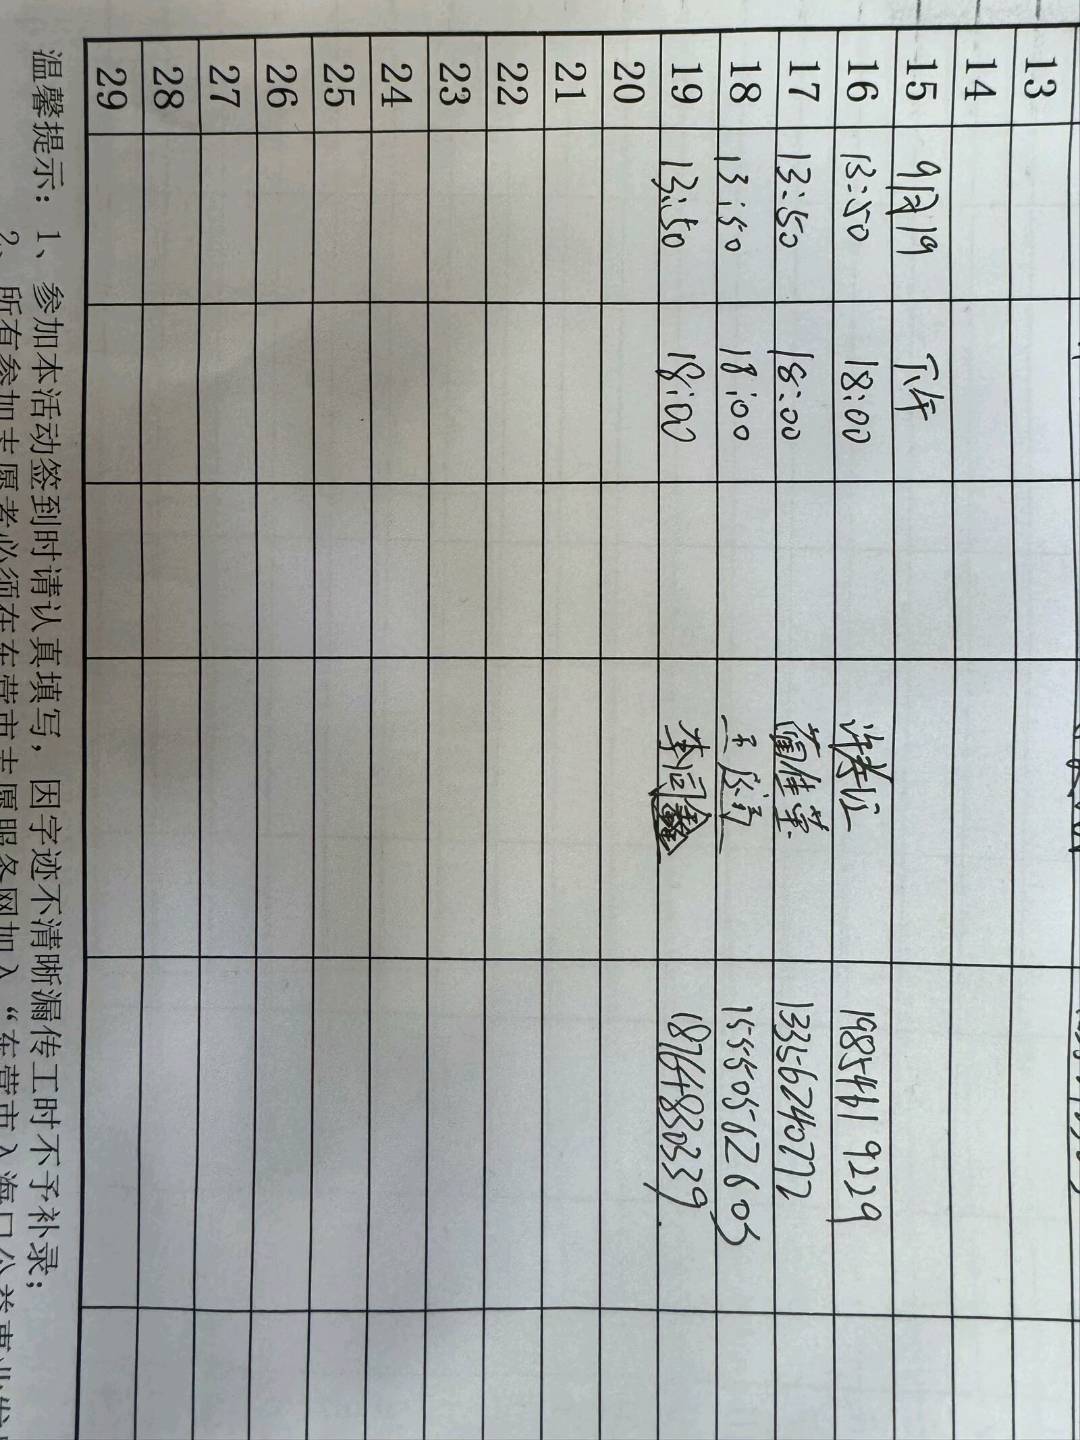 13
14
15 9月19 下午
16 13:50 18:00 19854619229
17 13:50 18:00 13356240772
18 13:50 18:00 王 15550562603
19 13:50 18:00 李同鑫 18764830339
20
21
22
23
24
25
26
27
28
29
温馨提示：1、参加本活动签到时请认真填写，因字迹不清晰漏传工时不予补录；
2、所有参加志愿者必须在东营市志愿服务网加入“东营市入海口公益事业发